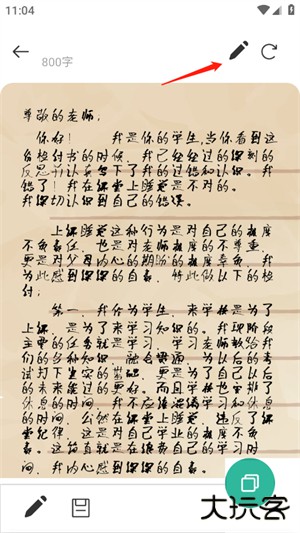 11:04
800字
尊敬的老师：
你好！ 我是你的学生，当你看到这
份检讨书的时候，我已经经过的深刻的
反思并认真写下了我的过错和认识。我
错了！我在课堂上睡觉是不对的。
我深切认识到自己的错误。
上课睡觉这种行为是对自己的极度
不负责任，也是对老师极度的不尊重，
更是对父母内心的期盼的极度辜负，我
为此感到深深的自责，特此做以下的检
讨：
第一，我作为学生，来学校是为了
上课，是为了来学习知识的。我现阶段
主要的任务就是学习，学习老师教给我
们的各种知识，融会贯通，为以后的考
试打下坚实的基础，更是为了自己以后
的未来能过的更好。而且学校也安排了
休息的时间，我不应该混淆学习和休息
的时间，公然在课堂上睡觉，违反了课
堂纪律，这是对自己学业的极度不负
责。这简直就是在浪费自己的学习时
间，我内心感到深深的自责。
大玩客